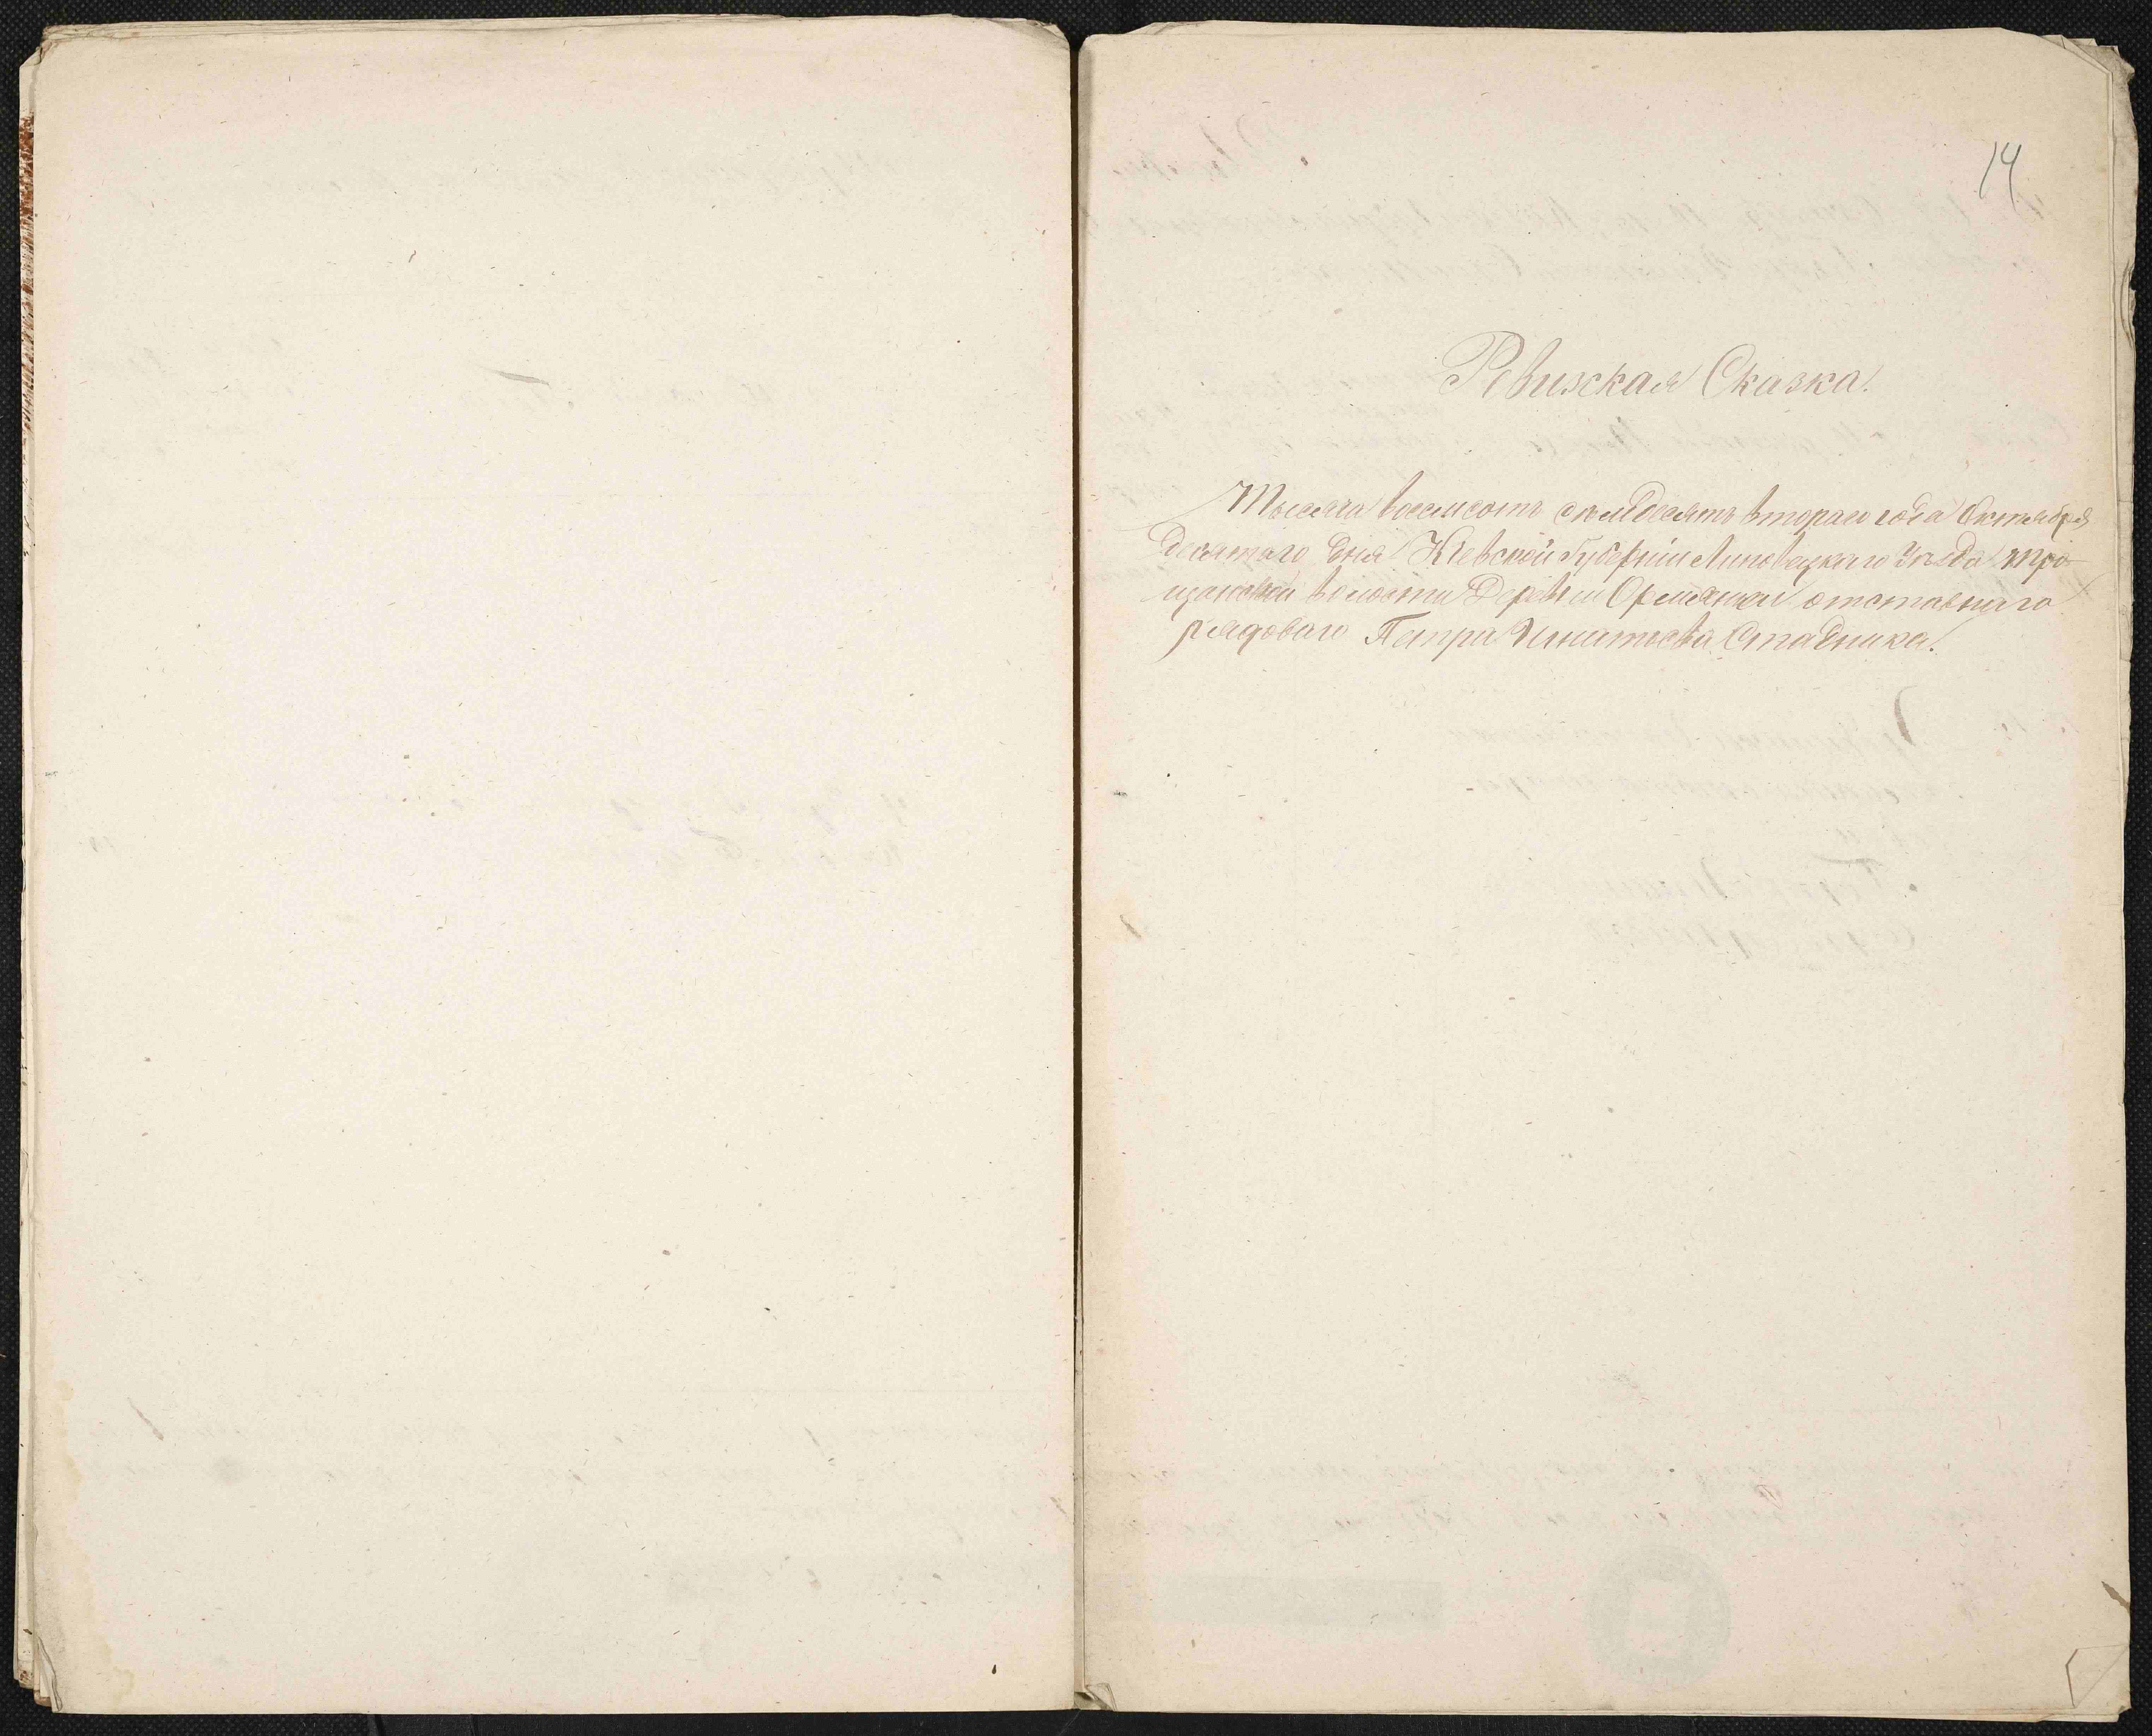 14
Ревизская Сказка.
Тысяча восемсотъ семдесятъ втораго года Октября
десятаго дня Кіевской Губерніи Липовецкаго Уѣзда тро-
щанской волости Деревни отставнаго
рядоваго Петра Игнатьева Стадника.